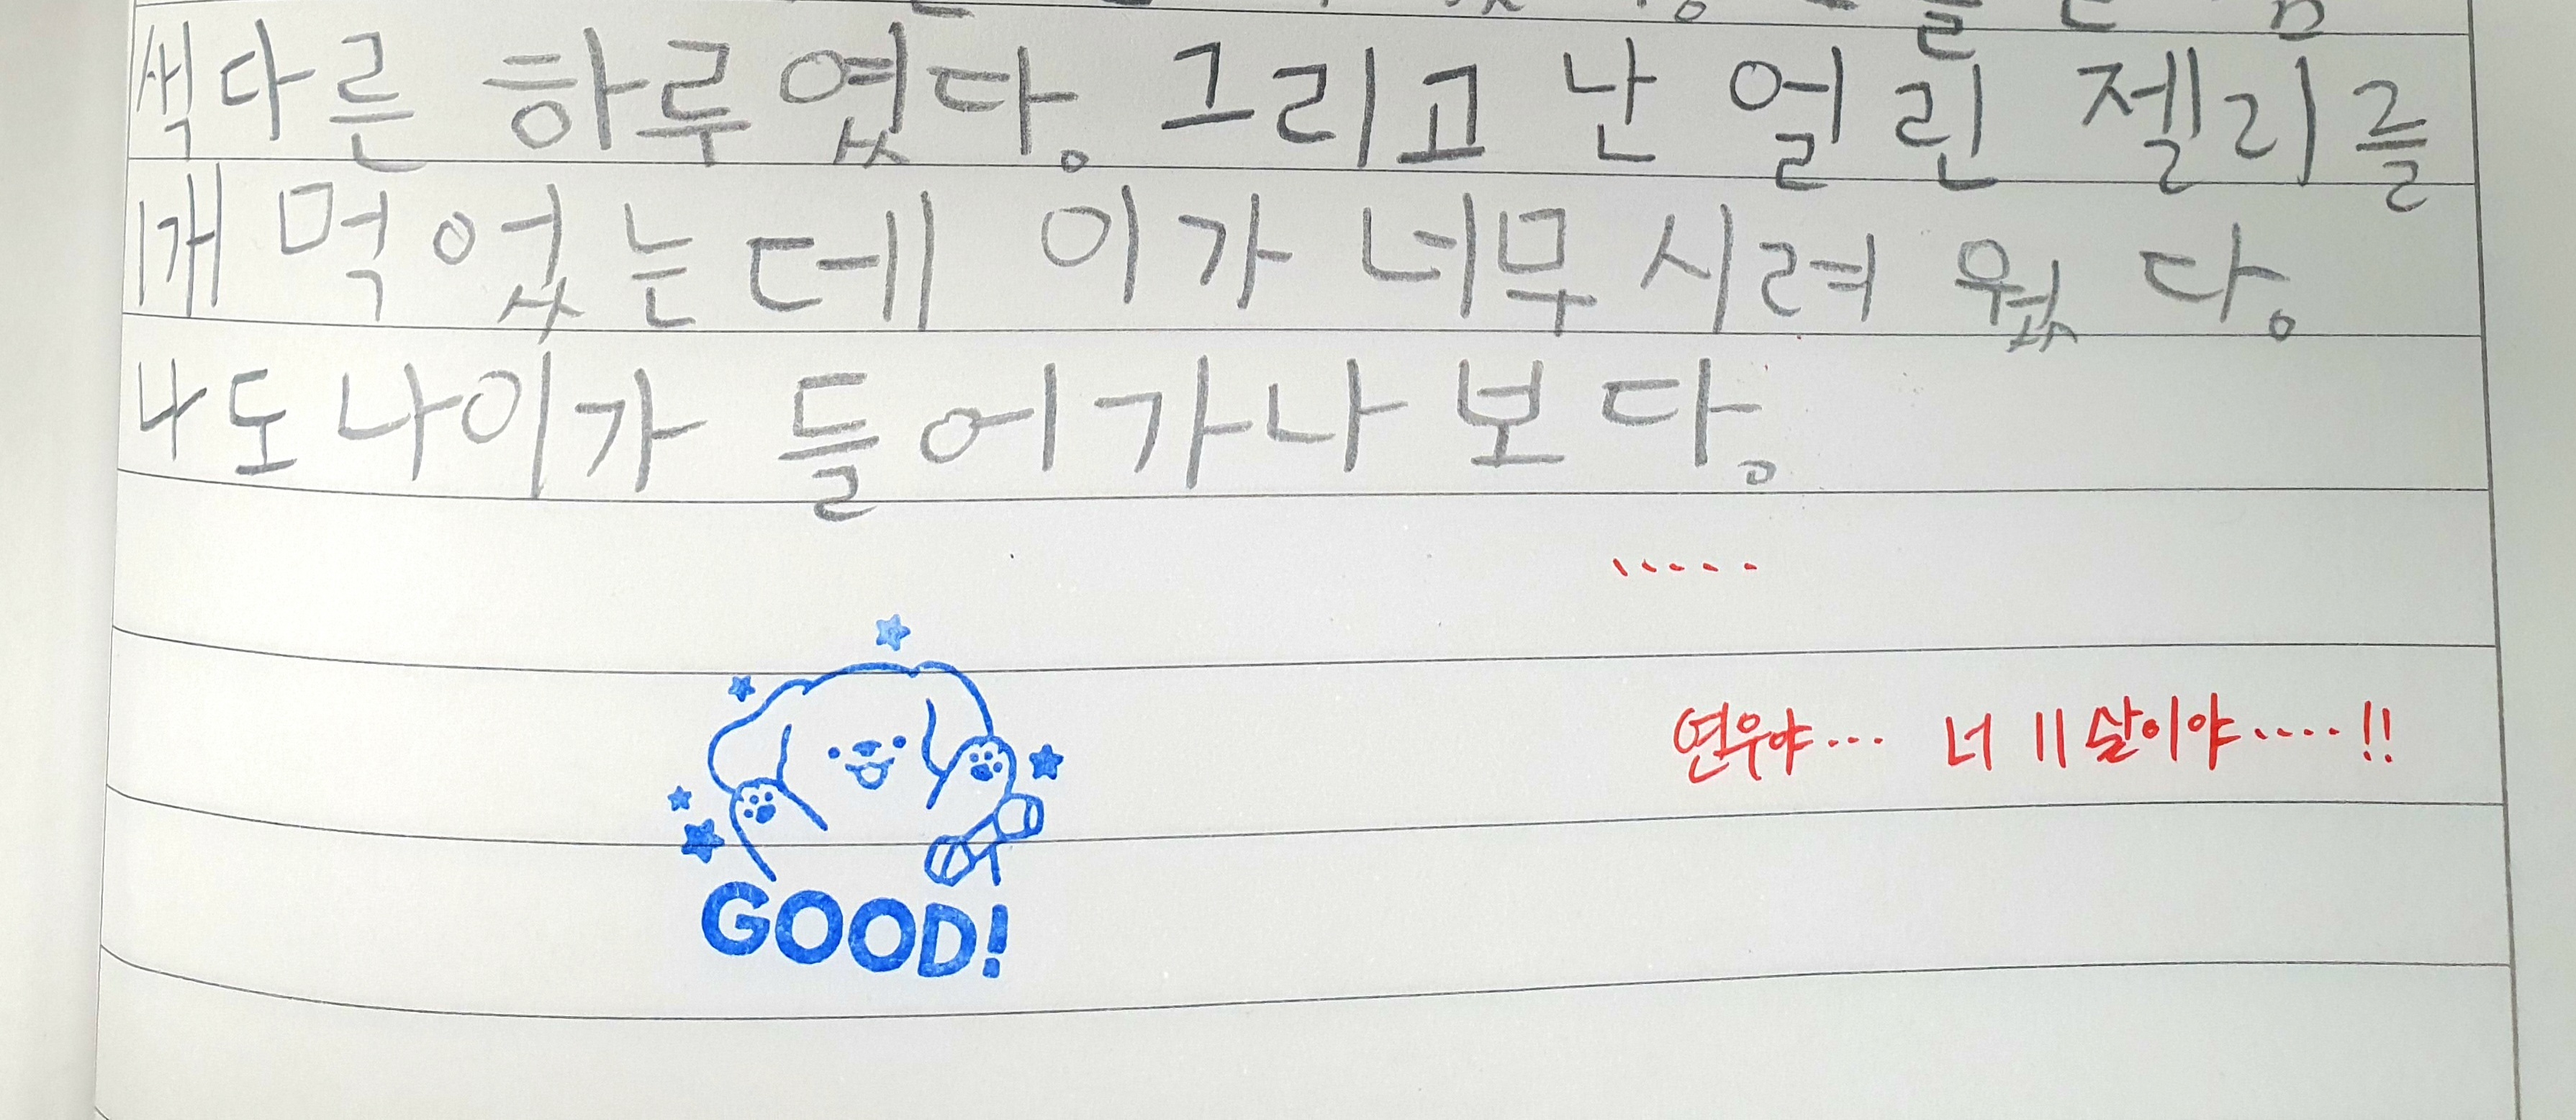 색다른 하루였다. 그리고 난 얼린 젤리를
1개 먹었는데 이가 너무 시려웠다.
나도 나이가 들어가나 보다.
.....
연우야... 너 11살이야.....!!
GOOD!